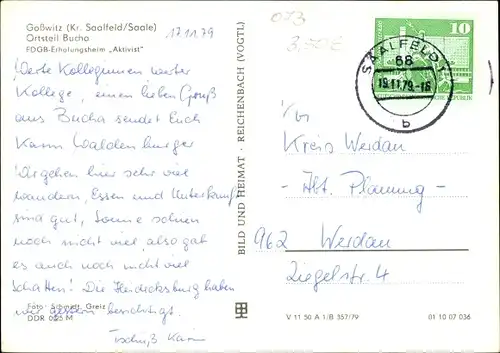 Goßwitz (Kr. Saalfeld/Saale)
Ortsteil Bucha
FDGB-Erholungsheim „Aktivist"
17.11.79
Werte Kolleginnen werter
Kollege, einen lieben Gruß
aus Bucha sendet Euch
Karin Waldenburger
Wir gehen hier sehr viel
wandern, Essen und Unterkunft
sind gut, Sonne schien
noch nicht viel, also gab
es auch noch nicht viel
Schatten! Die Heidecksburg haben
wir gestern besichtigt.
Tschüß Karin
Foto: Schmidt, Greiz
DDR 0,25 M
BILD UND HEIMAT · REICHENBACH (VOGTL)
073
3,50 €
10
SAALFELD
68
19.11.79.-16
b
An
Kreis Werdau
- Abt. Planung -
962 Werdau
Ziegelstr. 4
V 11 50 A 1/B 357/79
01 10 07 036